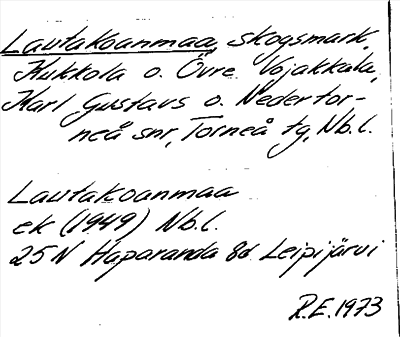 Lautakoanmaa, skogsmark,
Kukkola o. Övre Vojakkala,
Karl Gustavs o. Nedertor-
neå snr, Torneå tg, Nb.l.
Lautakoanmaa
ek (1949) Nb.l.
25N Haparanda 8d Leipijärvi
R.E. 1973